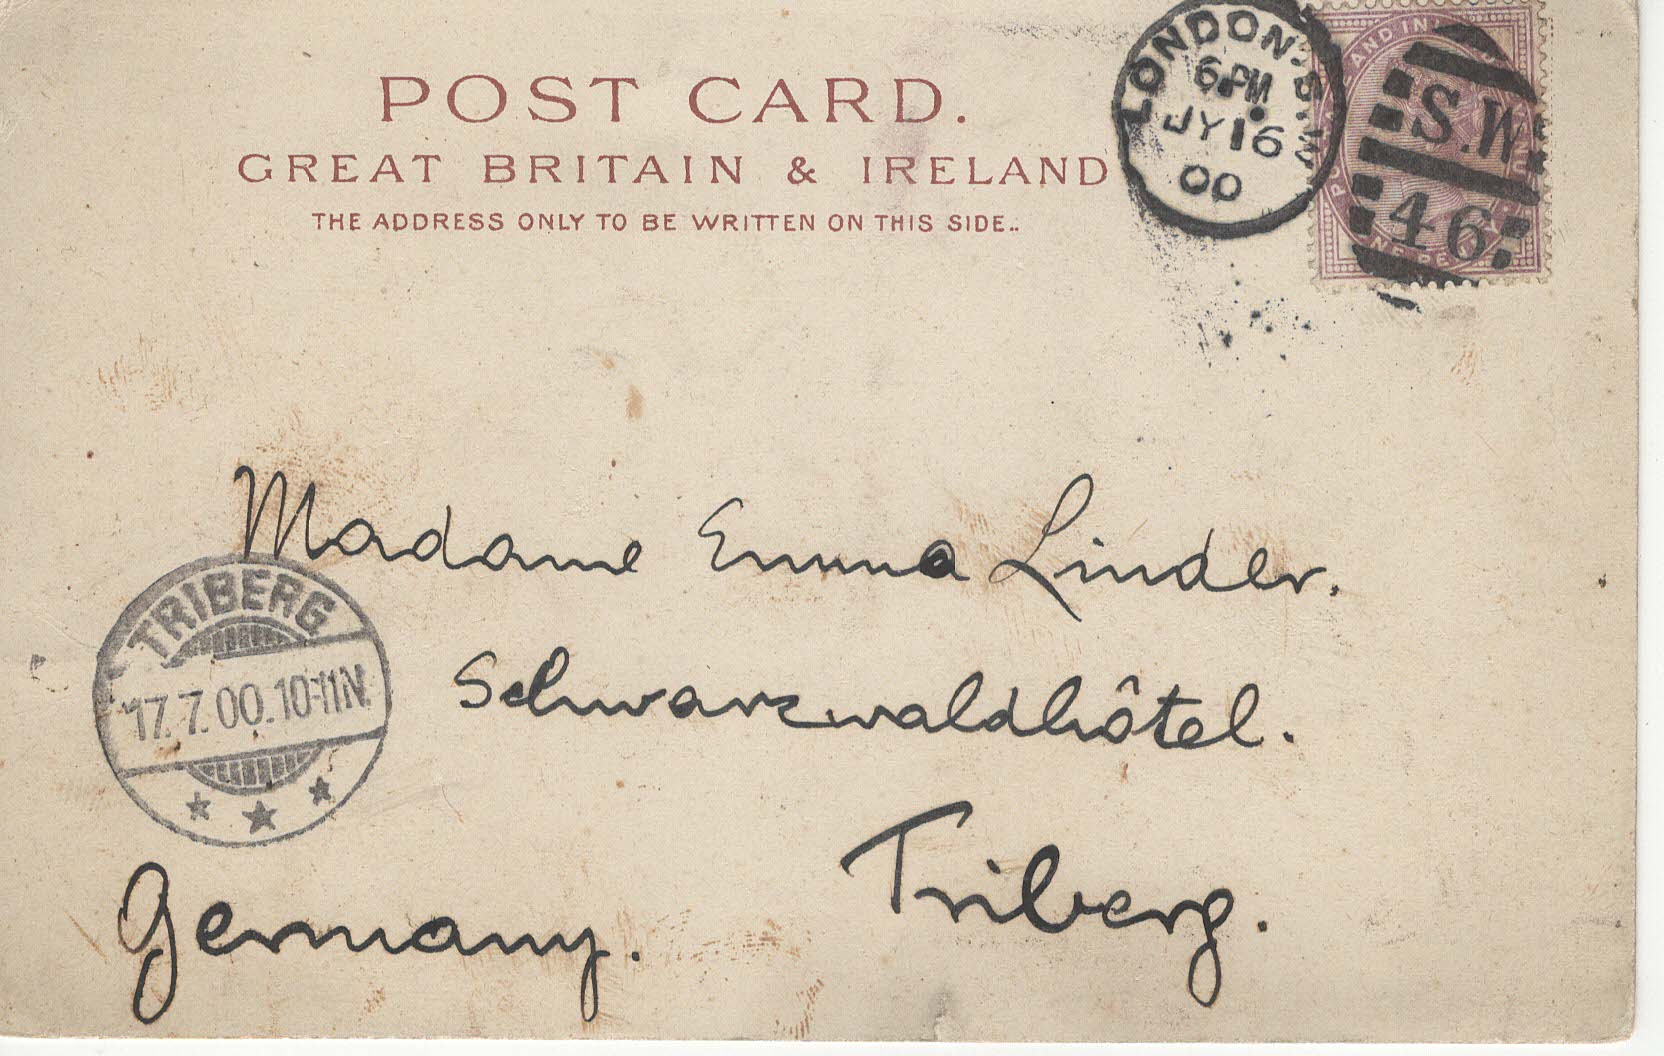 POST CARD.
GREAT BRITAIN & IRELAND
THE ADDRESS ONLY TO BE WRITTEN ON THIS SIDE..
LONDON. S.W
6 PM
JY 16
00
S.W.
46
Madame Emma Linder.
Schwarzwaldhôtel.
TRIBERG
17.7.00.10-11N.
Triberg.
Germany.